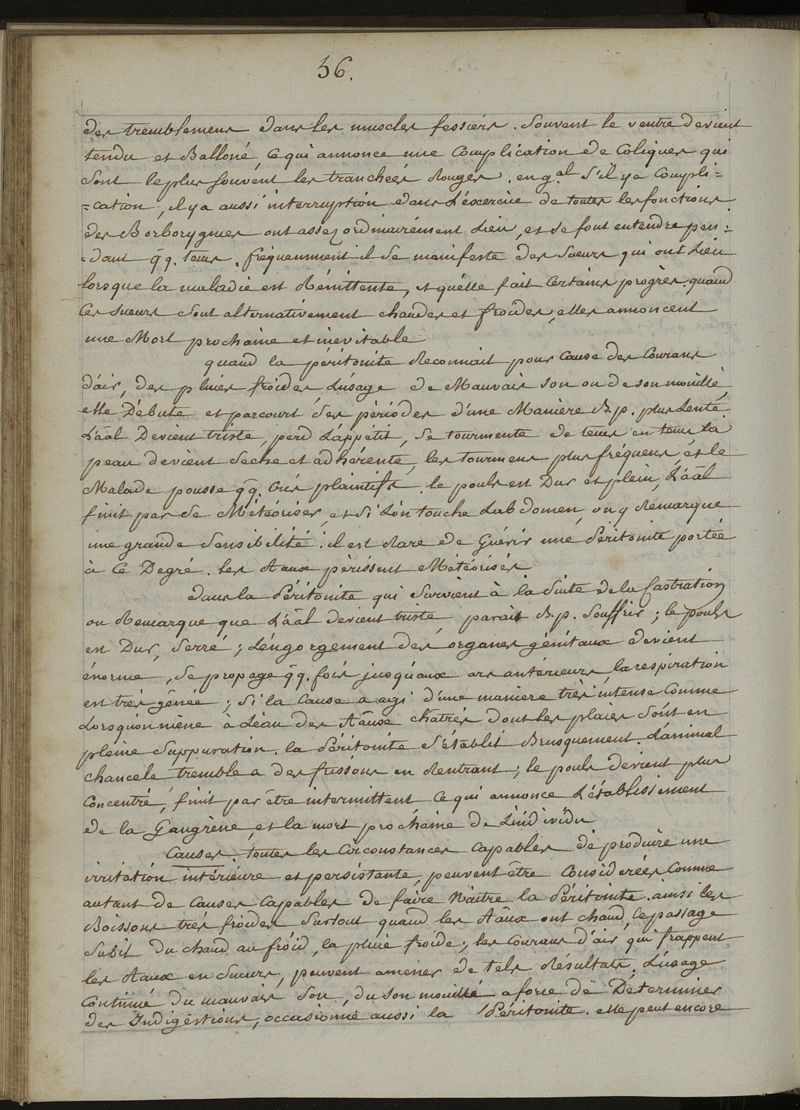 36.
des tremblemens dans les muscles fessiers. Souvent le ventre devient
tendu et Balloné, Ce qui annonce une Complication de Coliques qui
sont le plus souvent les tranchées Rouges. en gal S'il y a Compli=
=cation, il y a aussi interruption dans L'éxercice de toutes les fonctions
des Borborygmes ont assez ordinairement Lieu, et se font entendre pen=
=dant qq. tems. fréquemment il se manifeste des Sueurs qui ont Lieu
lorsque la maladie est Rémittente, et qu'elle fait Certains progrès. quand
Ces sueurs sont alternativement chaudes et froides, elles annoncent
une Mort prochaine et inévitable
quand la péritonite Reconnait pour Cause des Courans
d'air, des pluies froides, L'usage de Mauvais son ou de son mouillé,
elle Débute et parcourt ses périodes d'une Manière Bp. plus Lente
L'aal Devient triste, perd L'appétit, se tourmente de tems en tems la
peau devient Seche et adhérente, les tourmens plus fréquens, et le
Malade pousse qq. Cris plaintifs. le pouls est Dur et plein, L'aal
finit par se Météoriser, et Si L'on touche L'abdomen, on y Remarque
une grande Sensibilité. il est Rare de Guérir une Péritonite portée
à Ce Degré. les Aaux périssent Météorisés
dans la Péritonite qui Survient à la Suite de la Castration
on Remarque que L'aal devient triste parait Bp. Souffrir; le pouls
est Dur, Serré; L'engorgement des organes génitaux devient
énorme, se propage qq. fois jusqu'aux ars antérieurs, la respiration
est très gênée; Si la Cause a agi d'une maniere très intense Comme
Lorsqu'on mène à L'eau des Aaux châtrés dont les plaies sont en
pleine Suppuration. la Péritonite S'établit Brusquement. L'animal
chancele tremble a des frissons en Rentrant; le pouls devient plus
Concentré, finit par être intermittent Ce qui annonce L'établissement
de la Gangrène et la mort prochaine de L'individu
Causes. toutes les Circonstances Capables de produire une
irritation intérieure et persistante, peuvent être Considerées Comme
autant de Causes Capables de faire Naitre la Péritonite. ainsi les
Boissons très froides, Surtout quand les Aaux ont chaud, le passage
Subit du chaud au froid, la pluie froide; les Courans d'air qui frappent
les Aaux en Sueurs, peuvent amener de tels Résultats. L'usage
Continué du mauvais Son, du son mouillé a force de Déterminer
des Indigéstions, occasionne aussi la Péritonite. elle peut encore